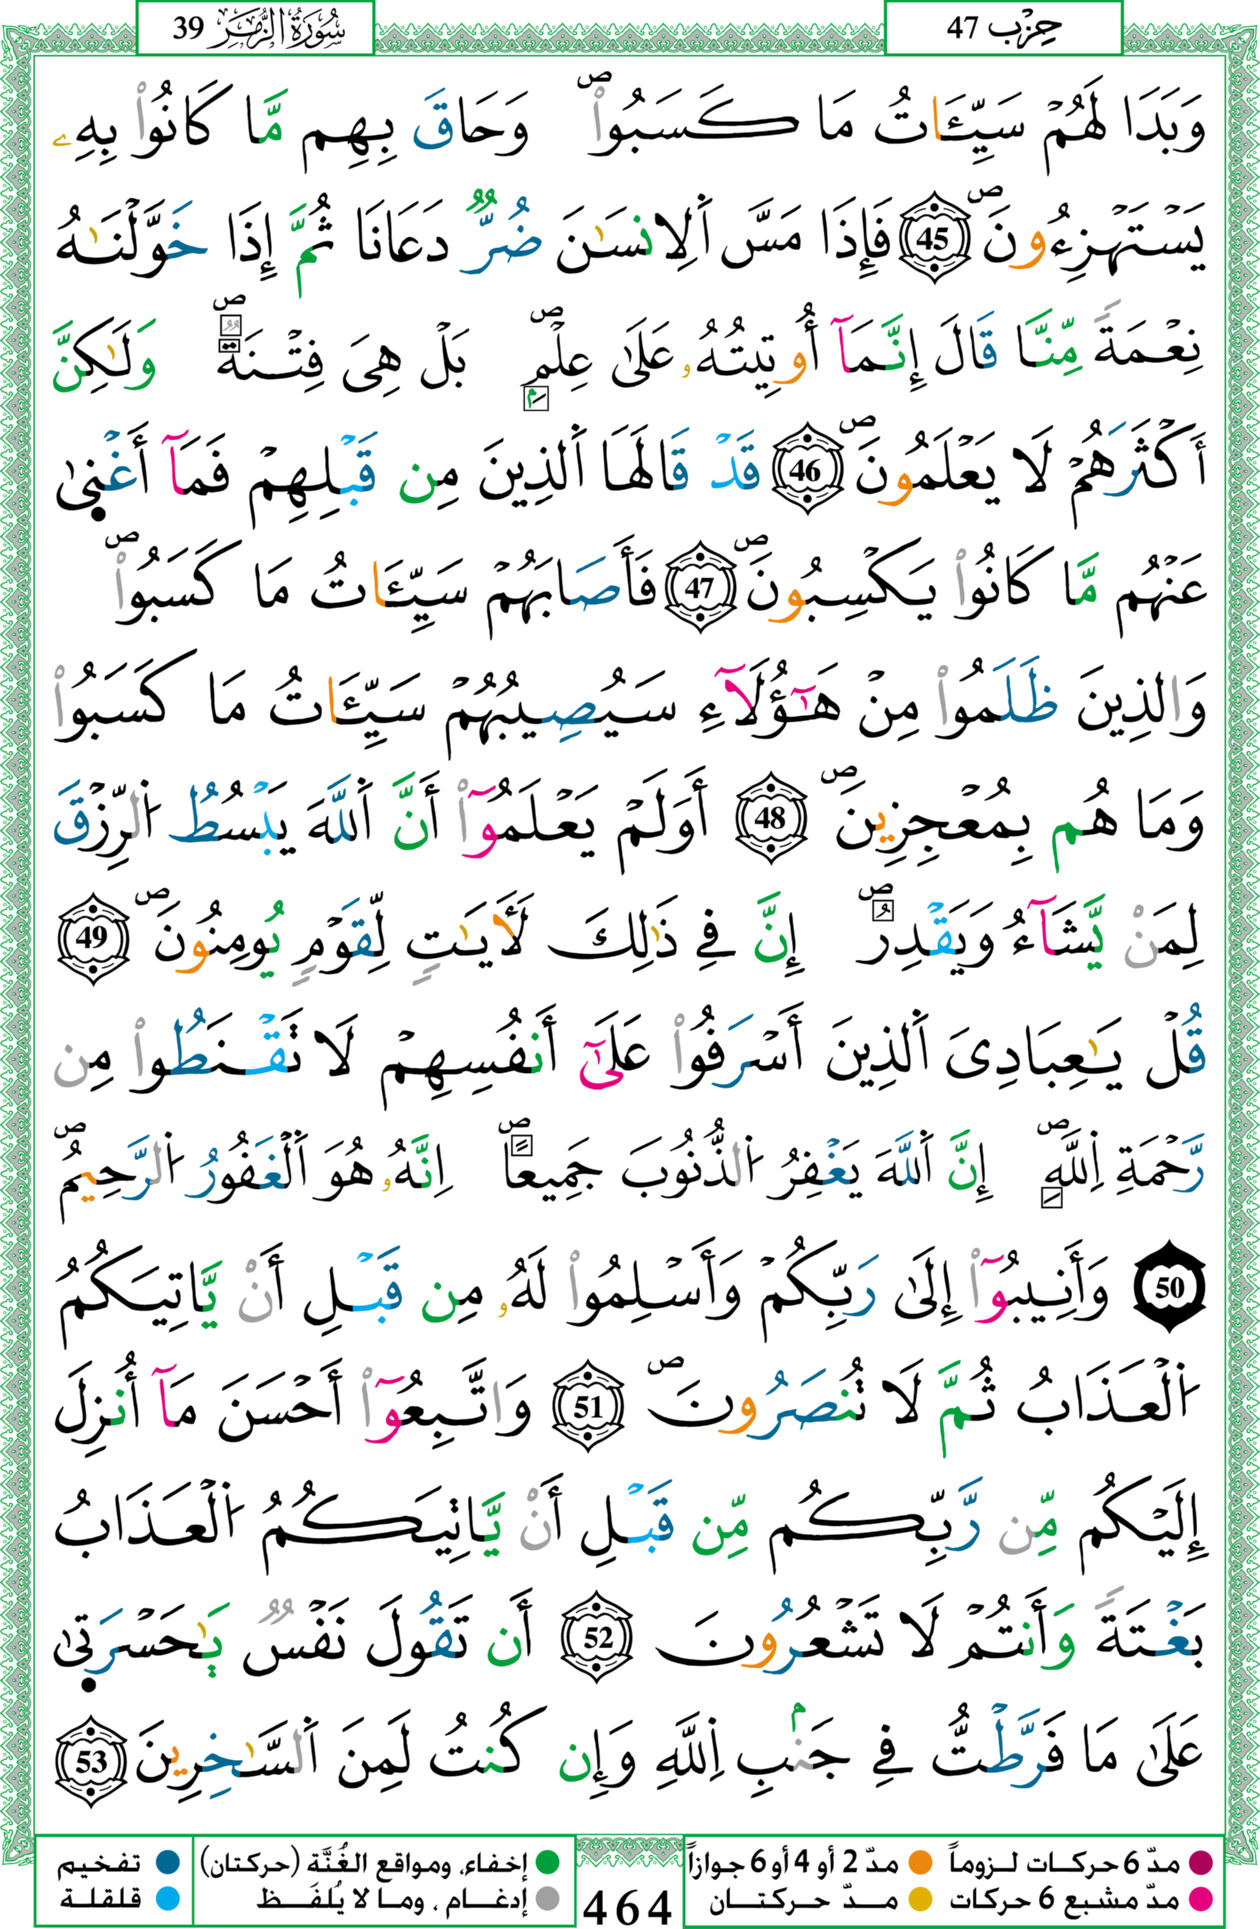 حِزْب 47
سُورَةُ الزُّمَرِ 39
وَبَدَا لَهُمْ سَيِّـَٔاتُ مَا كَسَبُواْ ۖ وَحَاقَ بِهِم مَّا كَانُواْ بِهِۦ
يَسْتَهْزِءُونَ ۖ 45 فَإِذَا مَسَّ اَلِانسَٰنَ ضُرٌّ دَعَانَا ثُمَّ إِذَا خَوَّلْنَٰهُ
نِعْمَةً مِّنَّا قَالَ إِنَّمَآ أُوتِيتُهُۥ عَلَىٰ عِلْمٍ ۖ بَلْ هِىَ فِتْنَةٌ ۖ وَلَٰكِنَّ
أَكْثَرَهُمْ لَا يَعْلَمُونَ ۖ 46 قَدْ قَالَهَا اَلذِينَ مِن قَبْلِهِمْ فَمَآ أَغْنِىٰ
عَنْهُم مَّا كَانُواْ يَكْسِبُونَ ۖ 47 فَأَصَابَهُمْ سَيِّـَٔاتُ مَا كَسَبُواْ ۖ
وَالذِينَ ظَلَمُواْ مِنْ هَٰٓؤُلَآءِ سَيُصِيبُهُمْ سَيِّـَٔاتُ مَا كَسَبُواْ
وَمَا هُم بِمُعْجِزِينَ ۖ 48 أَوَلَمْ يَعْلَمُوٓاْ أَنَّ اَللَّهَ يَبْسُطُ اُلرِّزْقَ
لِمَنْ يَّشَآءُ وَيَقْدِرُ ۖ إِنَّ فِے ذَٰلِكَ لَأٓيَٰتٍ لِّقَوْمٍ يُومِنُونَ ۖ 49
قُلْ يَٰعِبَادِىَ اَلذِينَ أَسْرَفُواْ عَلَىٰٓ أَنفُسِهِمْ لَا تَقْنَطُواْ مِن
رَّحْمَةِ اِللَّهِ ۖ إِنَّ اَللَّهَ يَغْفِرُ اُلذُّنُوبَ جَمِيعًا ۖ اِنَّهُۥ هُوَ اَلْغَفُورُ اُلرَّحِيمُ ۖ
50 وَأَنِيبُوٓاْ إِلَىٰ رَبِّكُمْ وَأَسْلِمُواْ لَهُۥ مِن قَبْلِ أَنْ يَّاتِيَكُمُ
اُلْعَذَابُ ثُمَّ لَا تُنصَرُونَ ۖ 51 وَاتَّبِعُوٓاْ أَحْسَنَ مَآ أُنزِلَ
إِلَيْكُم مِّن رَّبِّكُم مِّن قَبْلِ أَنْ يَّاتِيَكُمُ اُلْعَذَابُ
بَغْتَةً وَأَنتُمْ لَا تَشْعُرُونَ 52 أَن تَقُولَ نَفْسٌ يَٰحَسْرَتِىٰ
عَلَىٰ مَا فَرَّطتُّ فِے جَنۢبِ اِللَّهِ وَإِن كُنتُ لَمِنَ اَلسَّٰخِرِينَ 53
مدّ 6 حركات لـزوماً مدّ 2 أو 4 أو 6 جوازاً إخفاء، ومواقع الغُنَّة (حركتان) تفخيم
مدّ مشبع 6 حركات مـدّ حركتـان إدغـام ، ومـا لا يُلفَـظ قلقلـة
464